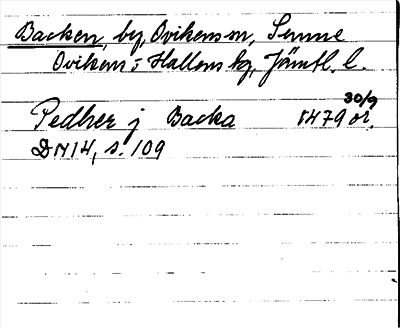 Backen, by, Ovikens sn,
Ovikens o Hallens tg, Jämtl. l.
Pedher j Backa 1479 30/9 or.
DN 14, s. 109